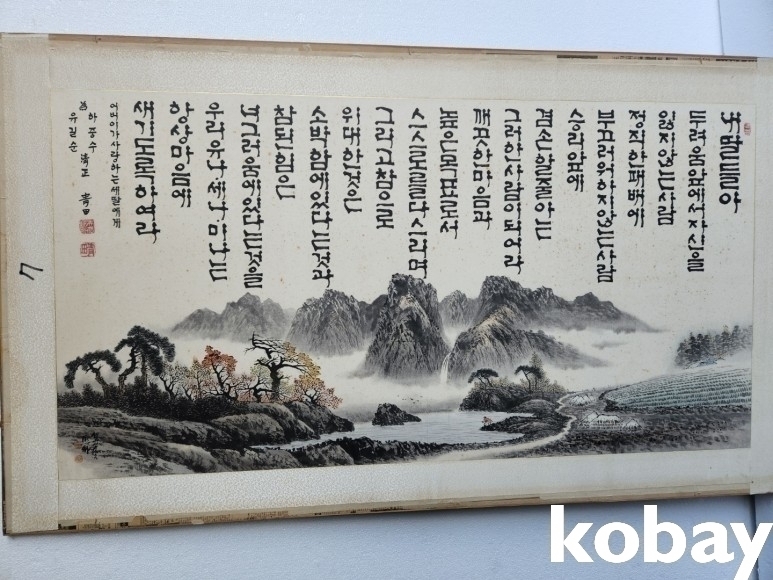 내딸들아
두려움앞에서 자신을
잃지 않는 사람
정직한 패배에
부끄러워하지 않는 사람
승리앞에
겸손할줄 아는
그러한 사람이 되어라
깨끗한 마음과
높은 목표로서
스스로를 다스리며
그리고 참으로
위대한 것은
소박함에 있다는것과
참된 힘은
너그러움에 있다는것을
우리 유나 세나 미나는
항상 마음에
새기도록 하여라
어버이가 사랑하는 세딸에게
爲 하중수 淸正
유길순
7
kobay